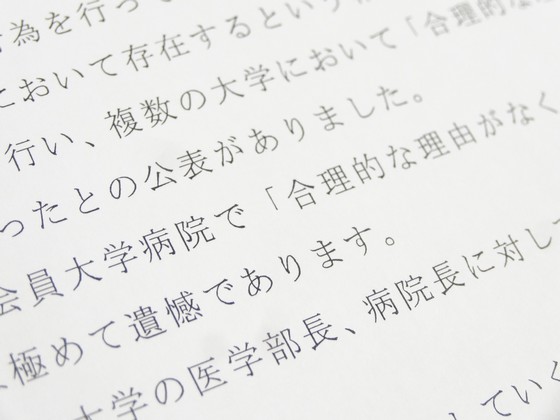 為を行って
において存在するという
行い、複数の大学において「合理的な
ったとの公表がありました。
会員大学病院で「合理的な理由がなく
、極めて遺憾であります。
大学の医学部長、病院長に対し
していく